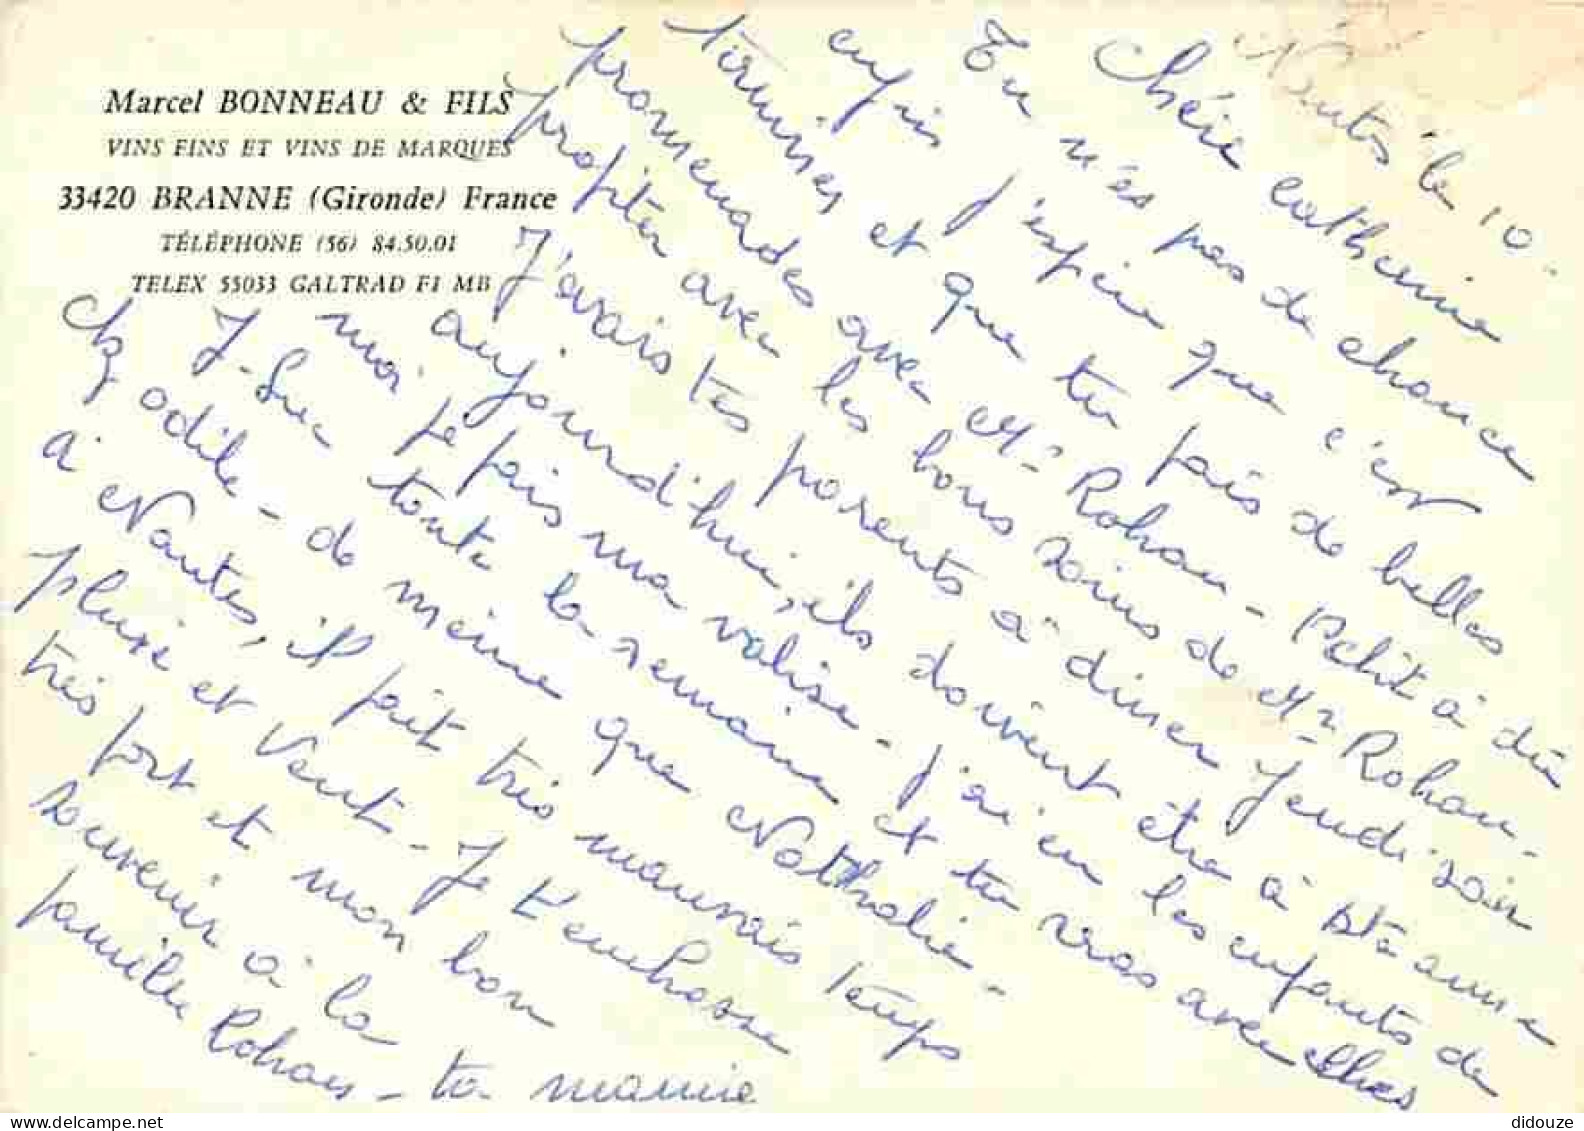 Marcel BONNEAU & FILS
VINS FINS ET VINS DE MARQUES
33420 BRANNE (Gironde) France
TÉLÉPHONE (56) 84.50.01
TELEX 55033 GALTRAD F1 MB
Nantes le 10
Chérie Catherine
Tu n'es pas de chance
enfin j'espère que c'est
terminés et que tu fais de belles
promenades avec Mr Rohan - Petit à dû
profiter avec les bons soins de Mr Rohan -
J'avais tes parents à diner Jeudi soir
aujourd'hui, ils doivent être à Ste anne
moi je fais ma valise - j'ai eu les enfants de
J-Luc toute la semaine et tu vras avec elles
chz odile - de même que Nathalie -
à Nantes, il fait très mauvais temps
pluie et vent - Je t'embrasse
très fort et mon bon
souvenir à la
famille Rohan - ta mamie
didouze